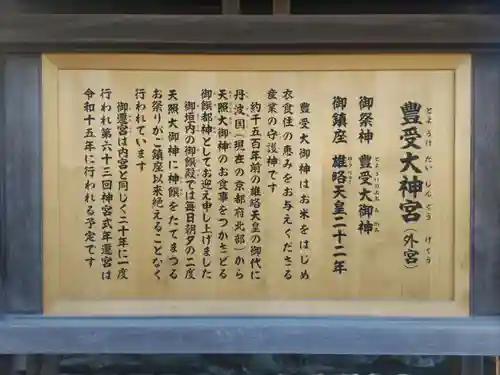 豊受大神宮（外宮）
とようけ だいじんぐう げくう
御祭神 豊受大御神
とようけのおおみかみ
御鎮座 雄略天皇二十二年
豊受大御神はお米をはじめ
衣食住の恵みをお与えくださる
産業の守護神です
約千五百年前の雄略天皇の御代に
丹波国（現在の京都府北部）から
天照大御神のお食事をつかさどる
御饌都神としてお迎え申し上げました
御垣内の御饌殿では毎日朝夕の二度
天照大御神に神饌をたてまつる
お祭りがご鎮座以来絶えることなく
行われています
御遷宮は内宮と同じく二十年に一度
行われ第六十三回神宮式年遷宮は
令和十五年に行われる予定です